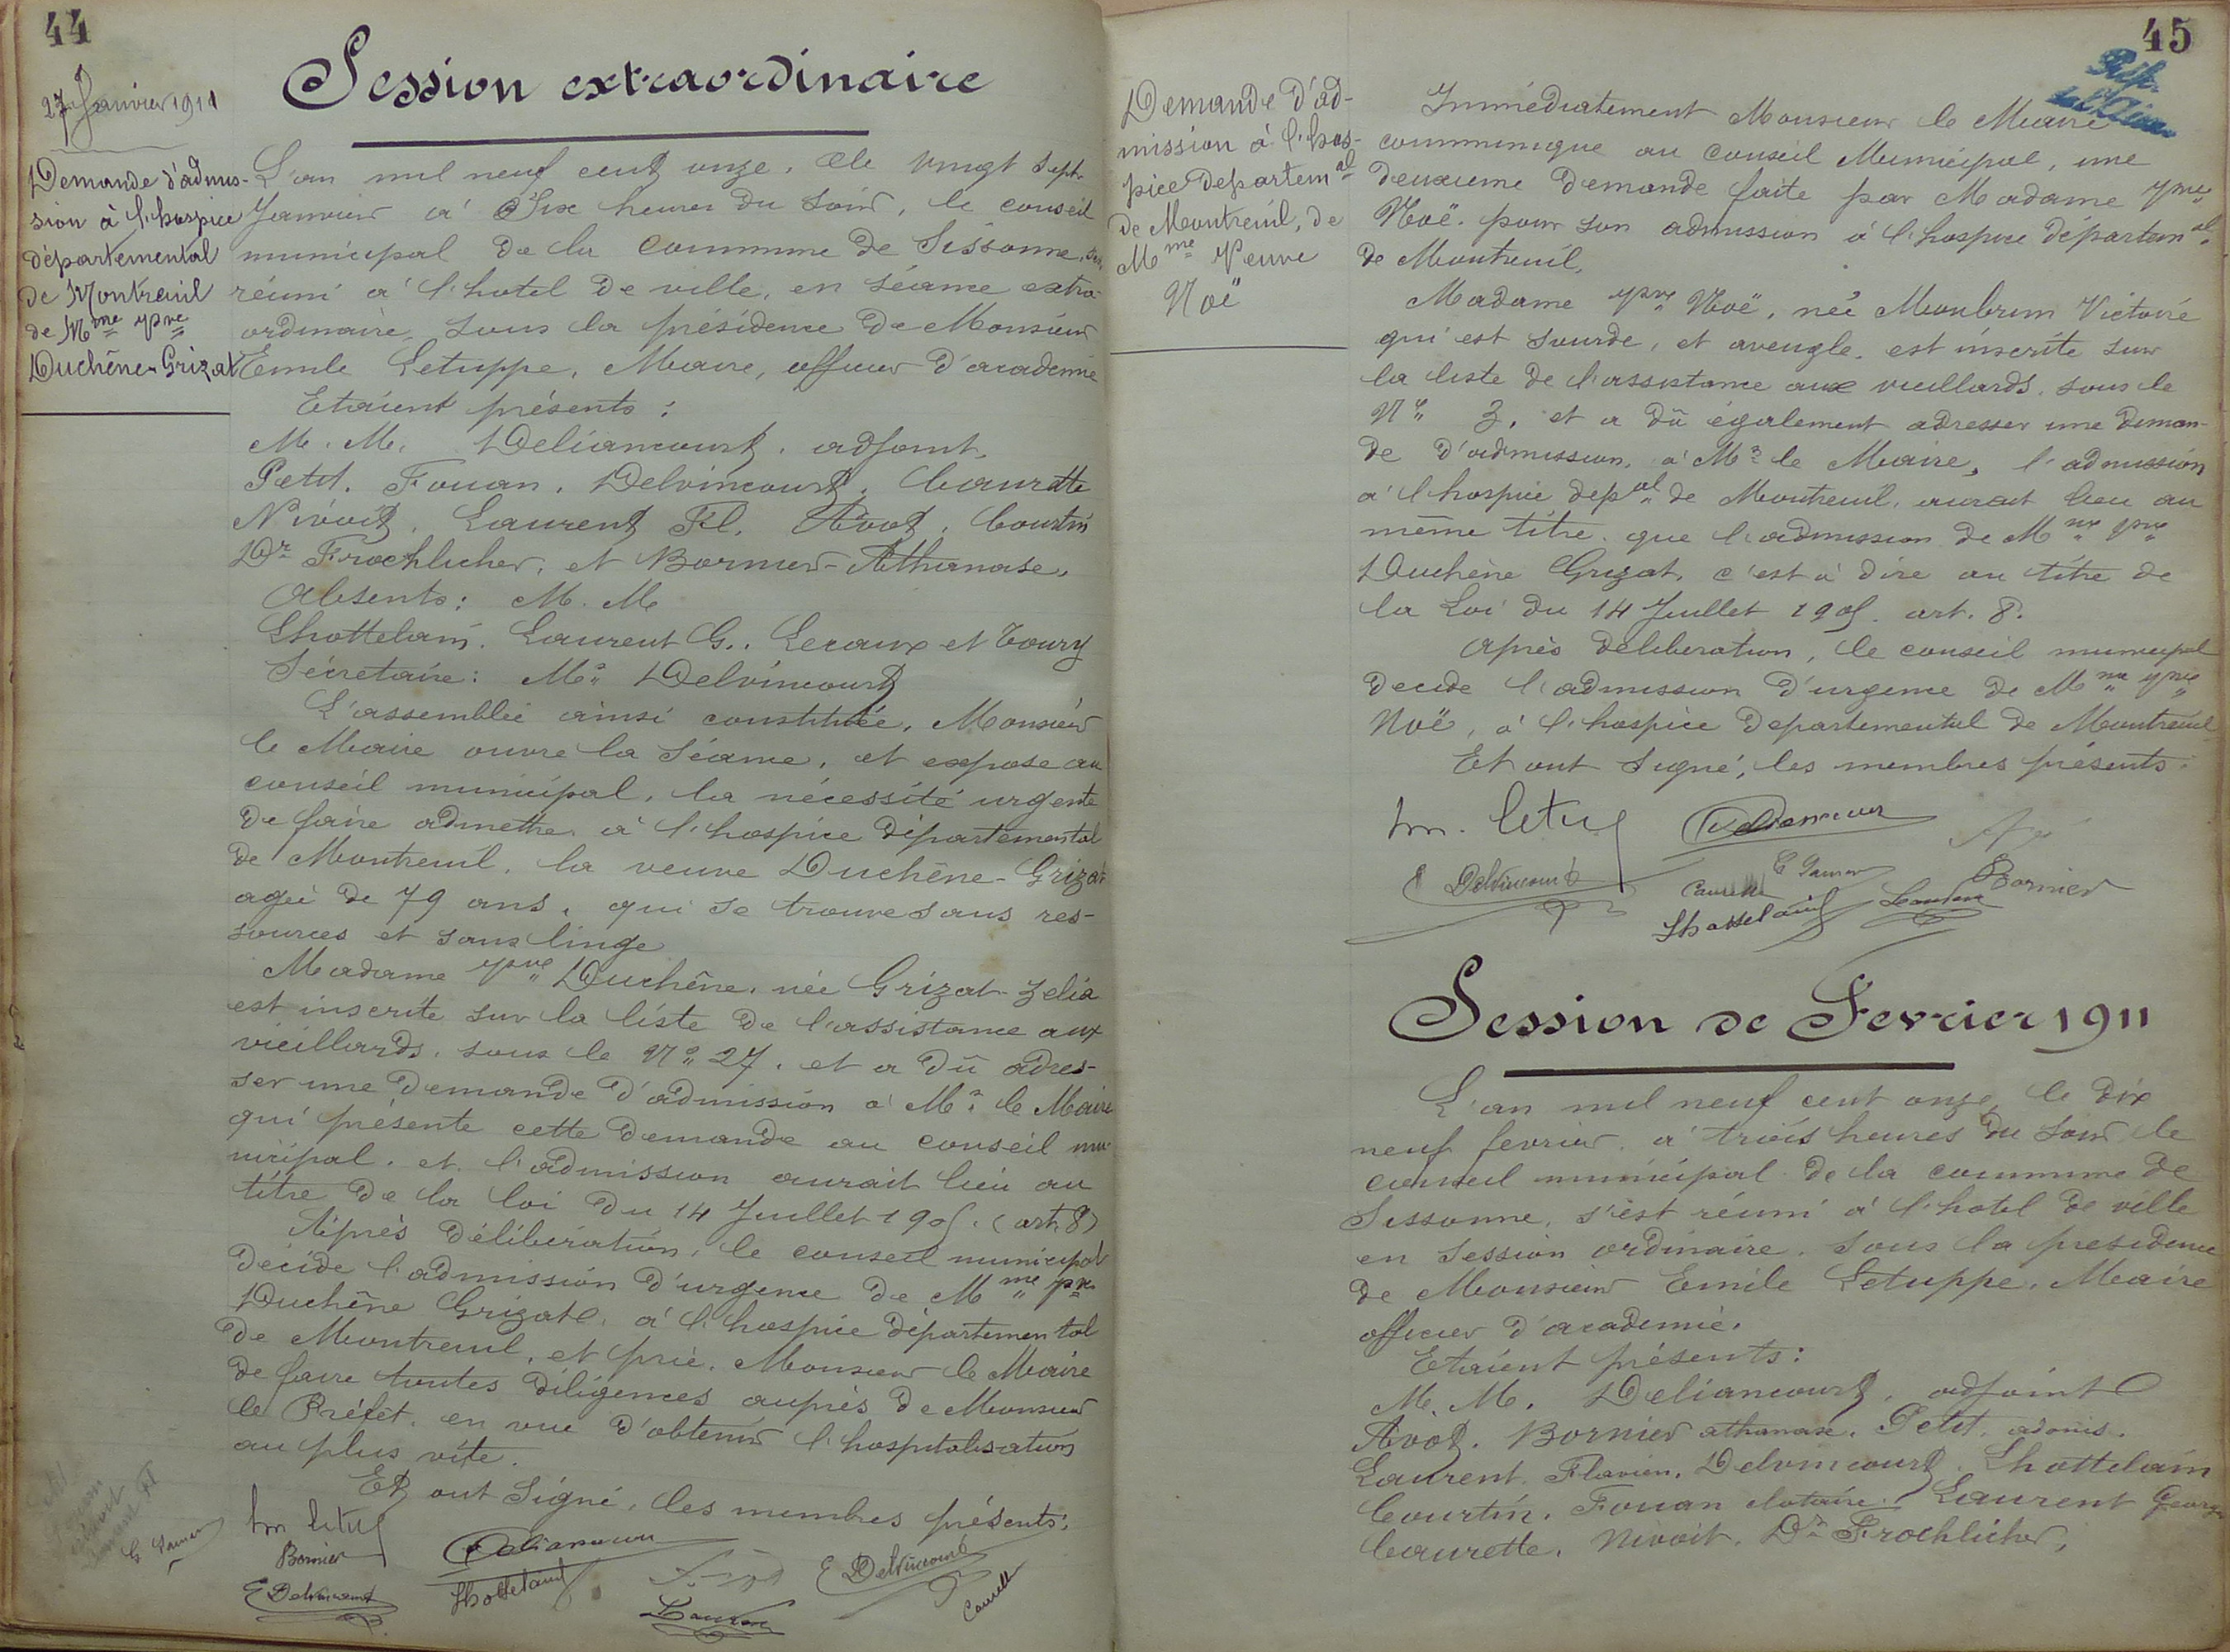 44
27 Janvier 1911
Session extraordinaire
Demande d'admis-
sion à l'hospice
départemental
de Montreuil
de Mme Vve
Duchêne-Grizat
L'an mil neuf cent onze, le vingt sept
Janvier à Six heures du soir, le conseil
municipal de la Commune de Sissonne, s'est
réuni à l'hotel de ville, en séance extra-
ordinaire, sous la présidence de Monsieur
Emile Letuppe, Maire, officier d'académie
Etaient présents :
M. M. Deliancourt, adjoint,
Petit, Fouan, Delvincourt, Caurette
Nivoit, Laurent Fl. Avot, Courtin
Dr Froehlicher, et Bornier-Athanase,
Absents : M. M.
Lhottelain, Laurent G., Lecaux et Toury
Sécretaire : Mr Delvincourt
L'assemblée ainsi constituée, Monsieur
le Maire ouvre la séance, et expose au
conseil municipal, la nécessité urgente
de faire admettre, à l'hospice départemental
de Montreuil, la veuve Duchêne-Grizat
agée de 79 ans, qui se trouve sans res-
sources et sans linge
Madame Vve Duchêne, née Grizat Zelia
est inscrite sur la liste de l'assistance aux
vieillards, sous le No 27, et a dû adres-
ser une demande d'admission à Mr le Maire
qui présente cette demande au conseil mu-
nicipal, et l'admission aurait lieu au
titre de la loi du 14 Juillet 1905. (art. 8)
Après délibération, le conseil municipal
décide l'admission d'urgence de Mme Vve
Duchêne Grizat, à l'hospice départemental
de Montreuil, et prie, Monsieur le Maire
de faire toutes diligences auprès de Monsieur
le Préfet, en vue d'obtenir l'hospitalisation
au plus vite.
Et ont signé, les membres présents.
Em Letup
Deliancour
Bornier
Lhottelain
E Delvincourt
E Delvincourt
Caurette
45
Demande d'ad-
mission à l'hos-
pice departemal
de Montreuil, de
Mme Veuve
Noë
Immédiatement Monsieur le Maire
communique au Conseil Municipal, une
deuxieme demande faite par Madame Vve
Noë, pour son admission à l'hospice départemal
de Montreuil,
Madame Vve Noë, née Monbrun Victoire
qui est sourde, et aveugle, est inscrite sur
la liste de l'assistance aux vieillards, sous le
No 3, et a dû également adresser une deman-
de d'admission, à Mr le Maire, l'admission
à l'hospice depal de Montreuil, aurait lieu au
même titre, que l'admission de Mme Vve
Duchêne Grizat, c'est à dire au titre de
la Loi du 14 Juillet 1905. art. 8.
Après déliberation, le conseil municipal
decide l'admission d'urgence de Mme Vve
Noë, à l'hospice departemental de Montreuil
Et ont signé, les membres présents.
Em. Letup
Deliancour
E Delvincourt
Caurette
Bornier
Lhottelain
Session de Fevrier 1911
L'an mil neuf cent onze, le dix
neuf fevrier, à trois heures du soir le
conseil municipal de la commune de
Sissonne, s'est réuni à l'hotel de ville
en session ordinaire, sous la presidence
de Monsieur Emile Letuppe, Maire
officier d'academie.
Etaient présents :
M. M. Deliancourt, adjoint
Avot, Bornier athanase, Petit, adonis,
Laurent, Flavien, Delvincourt, Lhottelain
Courtin, Fouan Clotaire, Laurent Georges
Caurette, Nivoit, Dr Froehlicher,